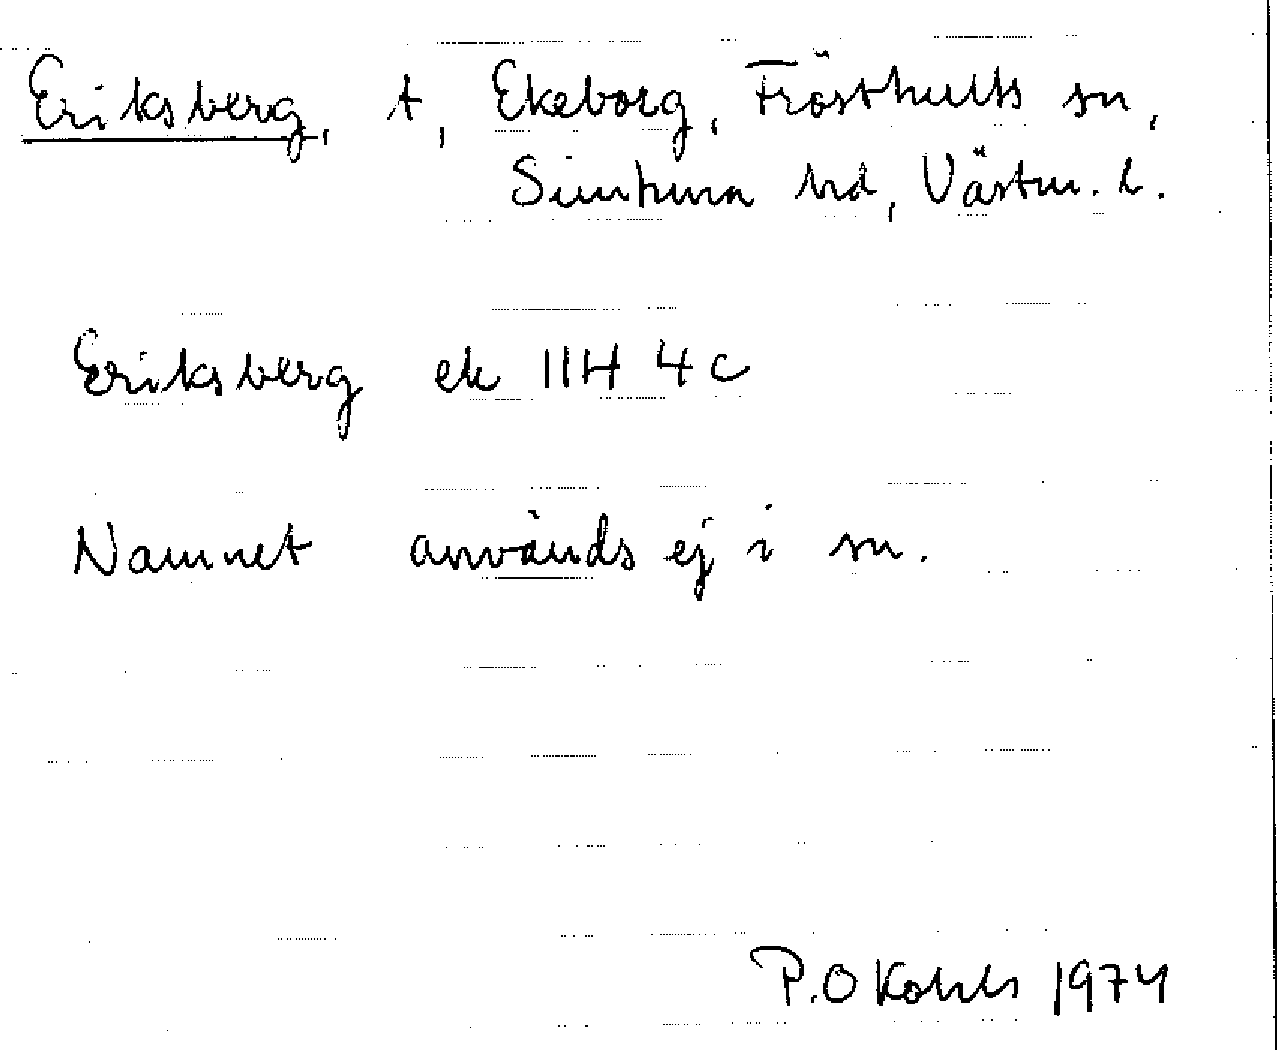 Eriksberg, t, Ekeborg, Frösthults sn,
Simtuna hd, Västm. l.
Eriksberg ek 11H 4c
Namnet används ej i sn.
P.O Kohls 1974